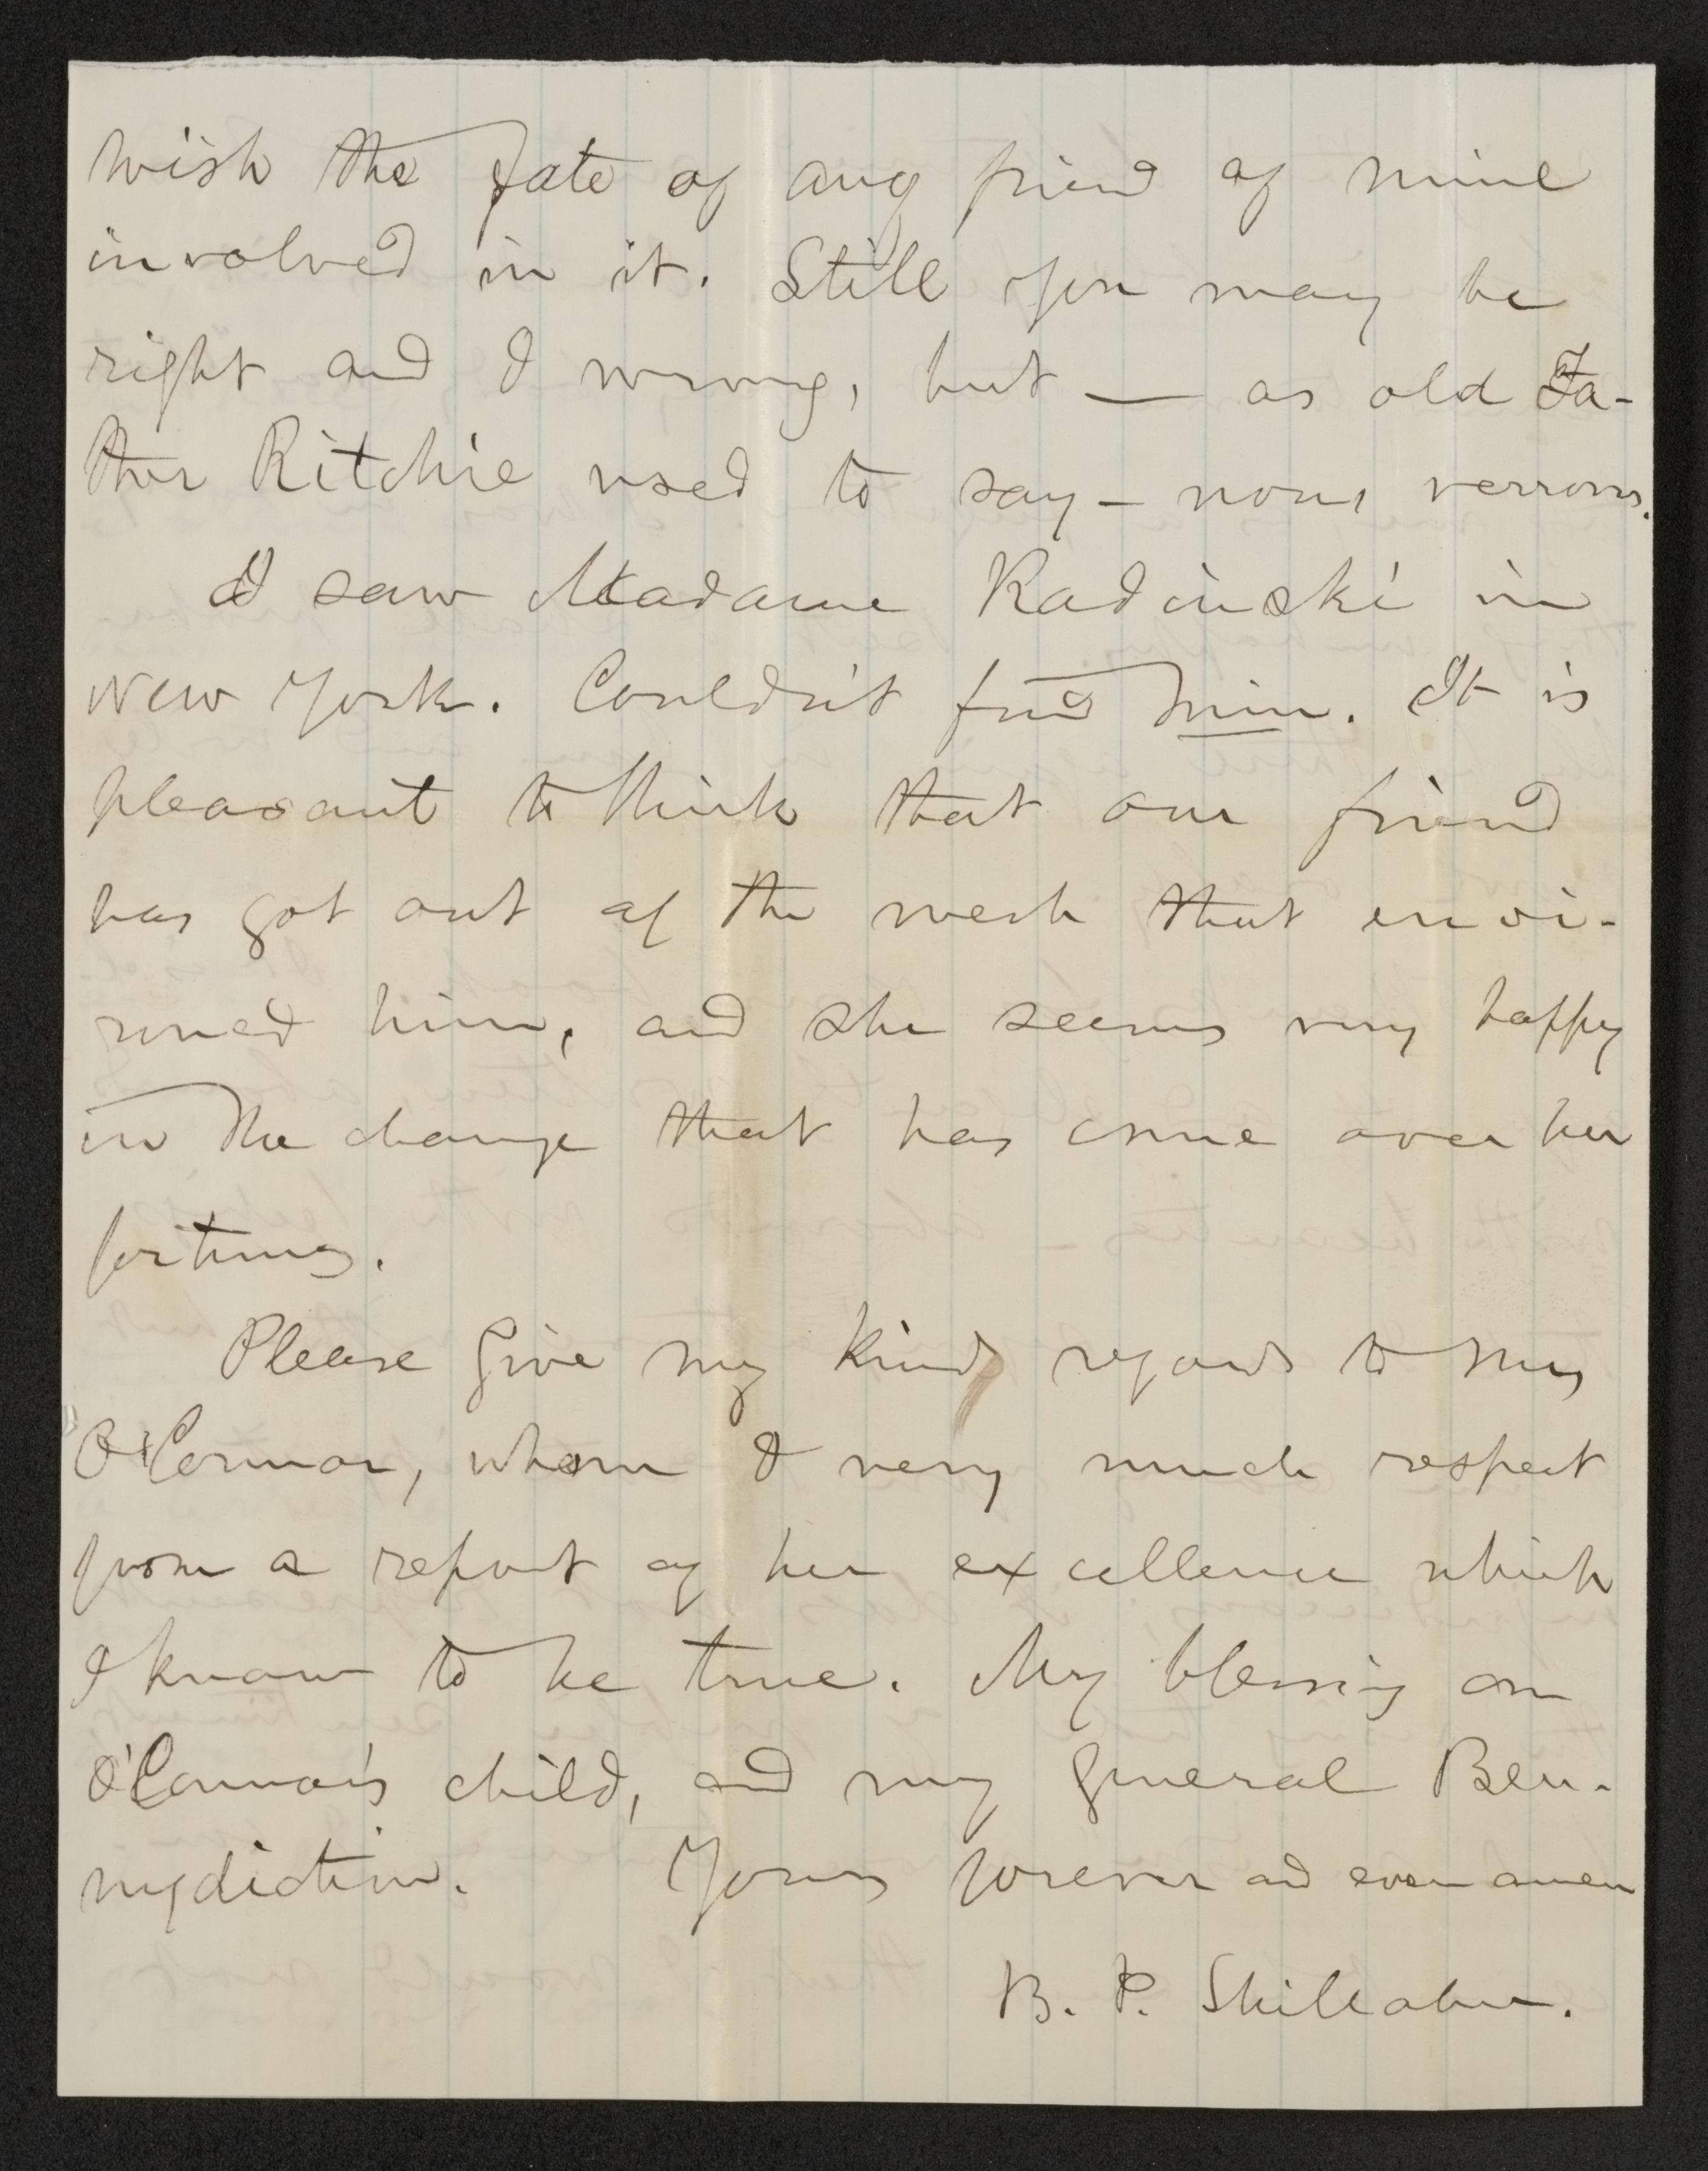 wish the fate of any friend of mine
involved in it. Still you may be
right and I wrong, but — as old Fa-
ther Ritchie used to say — nous verrons.
I saw Madame Radinski in
New York. Couldn't find him. It is
pleasant to think that our friend
has got out of the mesh that envi-
roned him, and she seems very happy
in the change that has come over her
fortunes.
Please give my kind regards to Mrs
O'Connor, whom I very much respect
from a report of her excellence which
I know to be true. My blessing on
O'Connor's child, and my general Ben-
nydiction. Yours forever and ever amen
B. P. Shillaber.